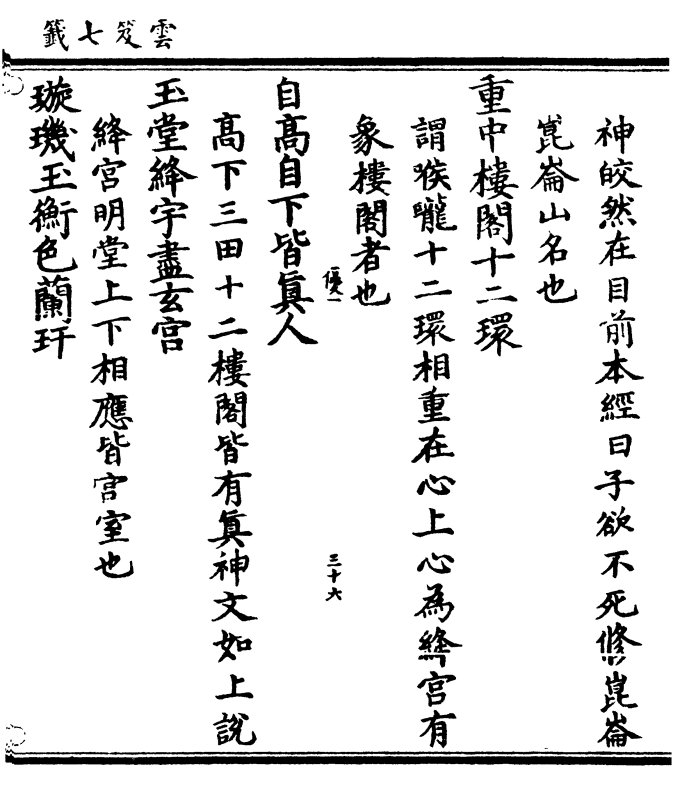 雲笈七籤
神皎然在目前本經曰子欲不死修崑崙
崑崙山名也
重中樓閣十二環
謂喉嚨十二環相重在心上心為絳宮有
象樓閣者也
優一
三十六
自高自下皆真人
高下三田十二樓閣皆有真神文如上說
玉堂絳宇盡玄宮
絳宮明堂上下相應皆宮室也
璇璣玉衡色蘭玕